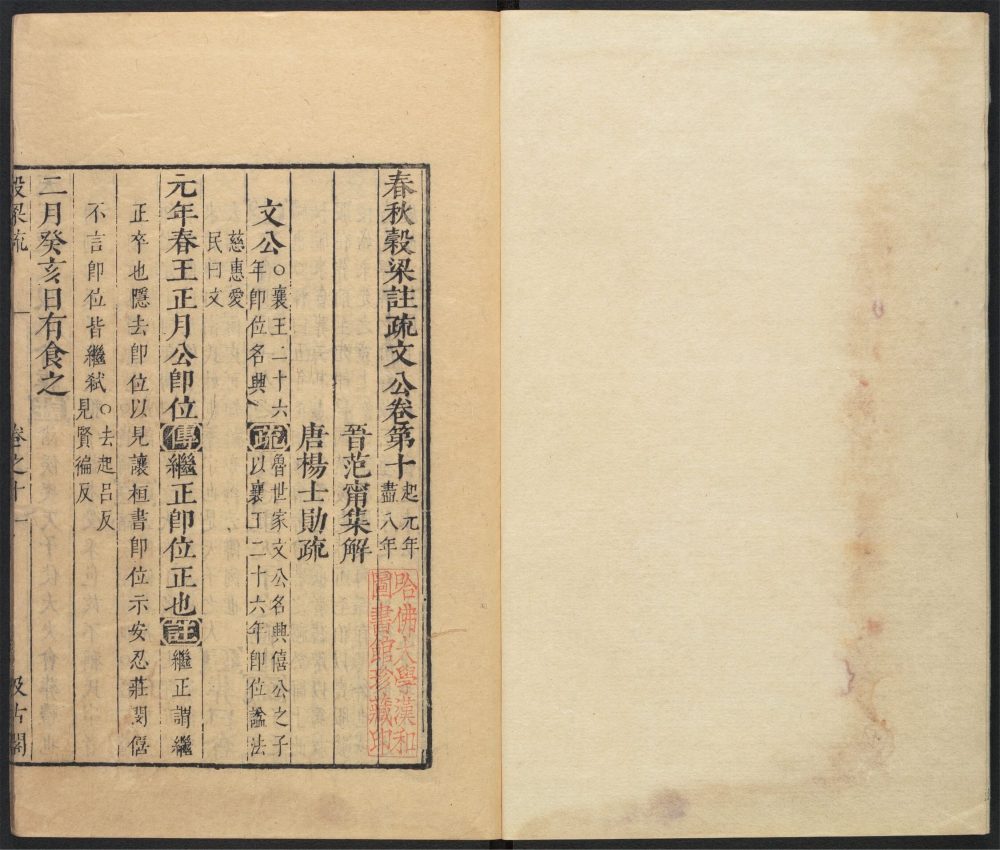 春秋穀梁註疏文公卷第十 起元年盡八年
晉范甯集解
唐楊士勛疏
文公 ○襄王二十六年即位名興 疏 魯世家文公名興僖公之子以襄王二十六年即位謚法
慈惠愛民曰文
元年春王正月公即位 傳 繼正即位正也 註 繼正謂繼
正卒也隱去即位以見讓桓書即位示安忍莊閔僖
不言即位皆繼弒 ○去起呂反見賢徧反
二月癸亥日有食之
穀梁疏 卷之十 一 汲古閣
哈佛大學漢和
圖書館珍藏印